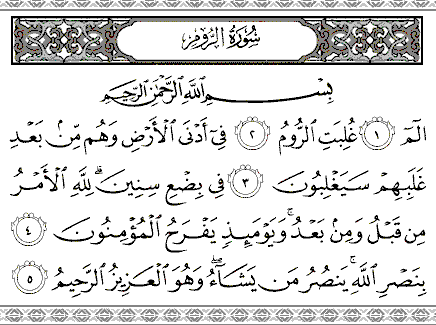 سُورَةُ الرُّومِ
بِسْمِ اللَّهِ الرَّحْمَٰنِ الرَّحِيمِ
الٓمٓ ١ غُلِبَتِ الرُّومُ ٢ فِىٓ أَدْنَى الْأَرْضِ وَهُم مِّنۢ بَعْدِ
غَلَبِهِمْ سَيَغْلِبُونَ ٣ فِى بِضْعِ سِنِينَ ۗ لِلَّهِ الْأَمْرُ
مِن قَبْلُ وَمِنۢ بَعْدُ ۚ وَيَوْمَئِذٍ يَفْرَحُ الْمُؤْمِنُونَ ٤
بِنَصْرِ اللَّهِ ۚ يَنصُرُ مَن يَشَآءُ ۖ وَهُوَ الْعَزِيزُ الرَّحِيمُ ٥